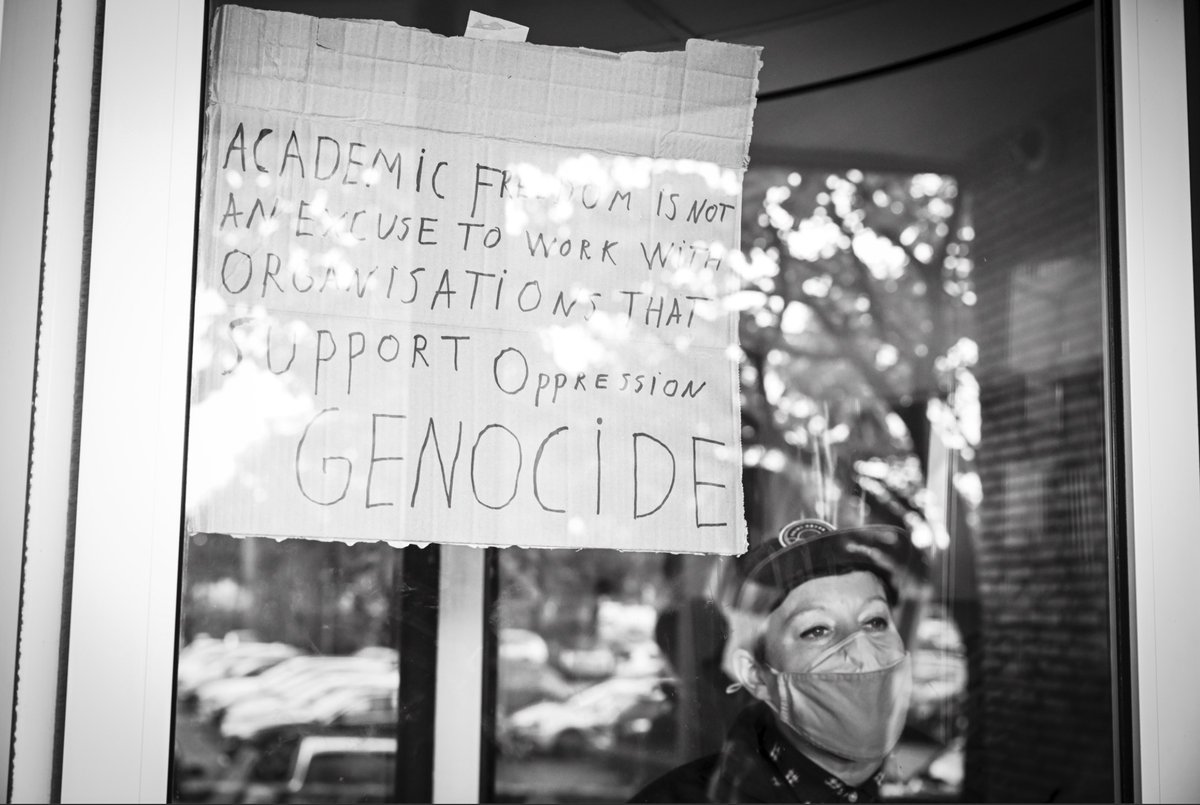 ACADEMIC FREEDOM IS NOT
AN EXCUSE TO WORK WITH
ORGANISATIONS THAT
SUPPORT OPPRESSION
GENOCIDE